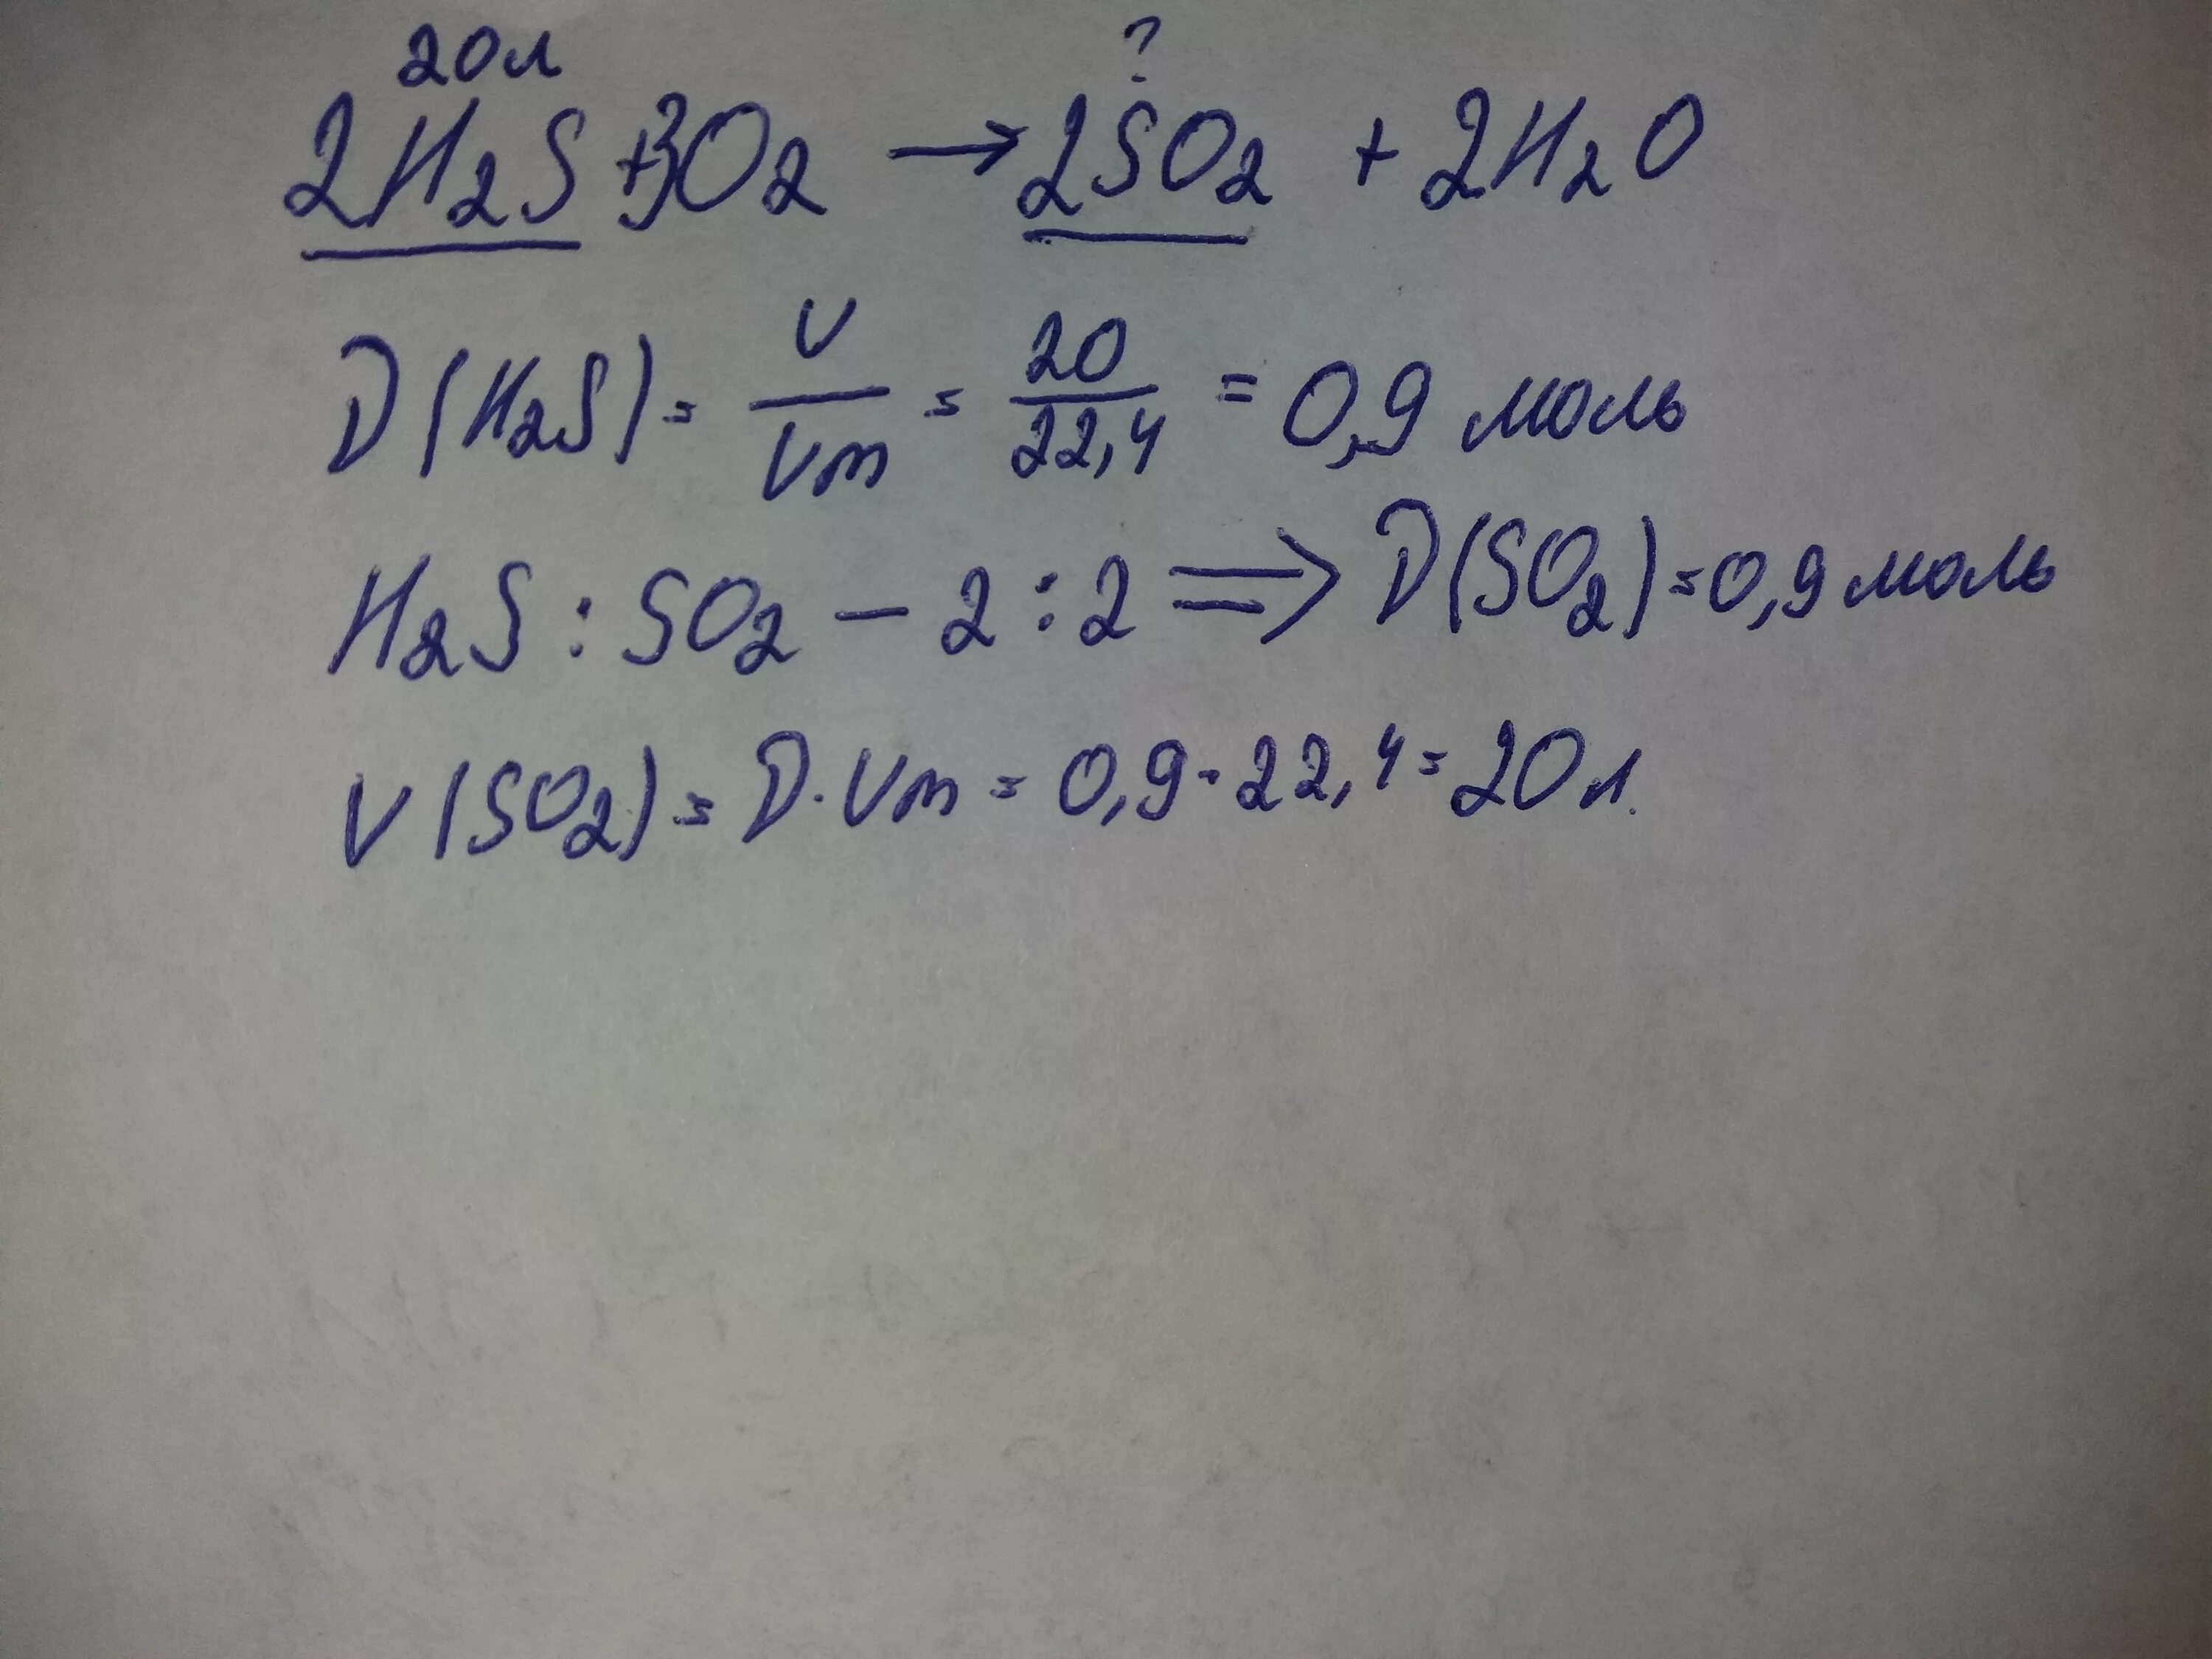 20л ?
2H₂S+3O₂ → 2SO₂ + 2H₂O
D(H₂S) = V/Vm = 20/22,4 = 0,9 моль
H₂S : SO₂ – 2 : 2 ⇒ D(SO₂) = 0,9 моль
V(SO₂) = D · Vm = 0,9 · 22,4 = 20 л.